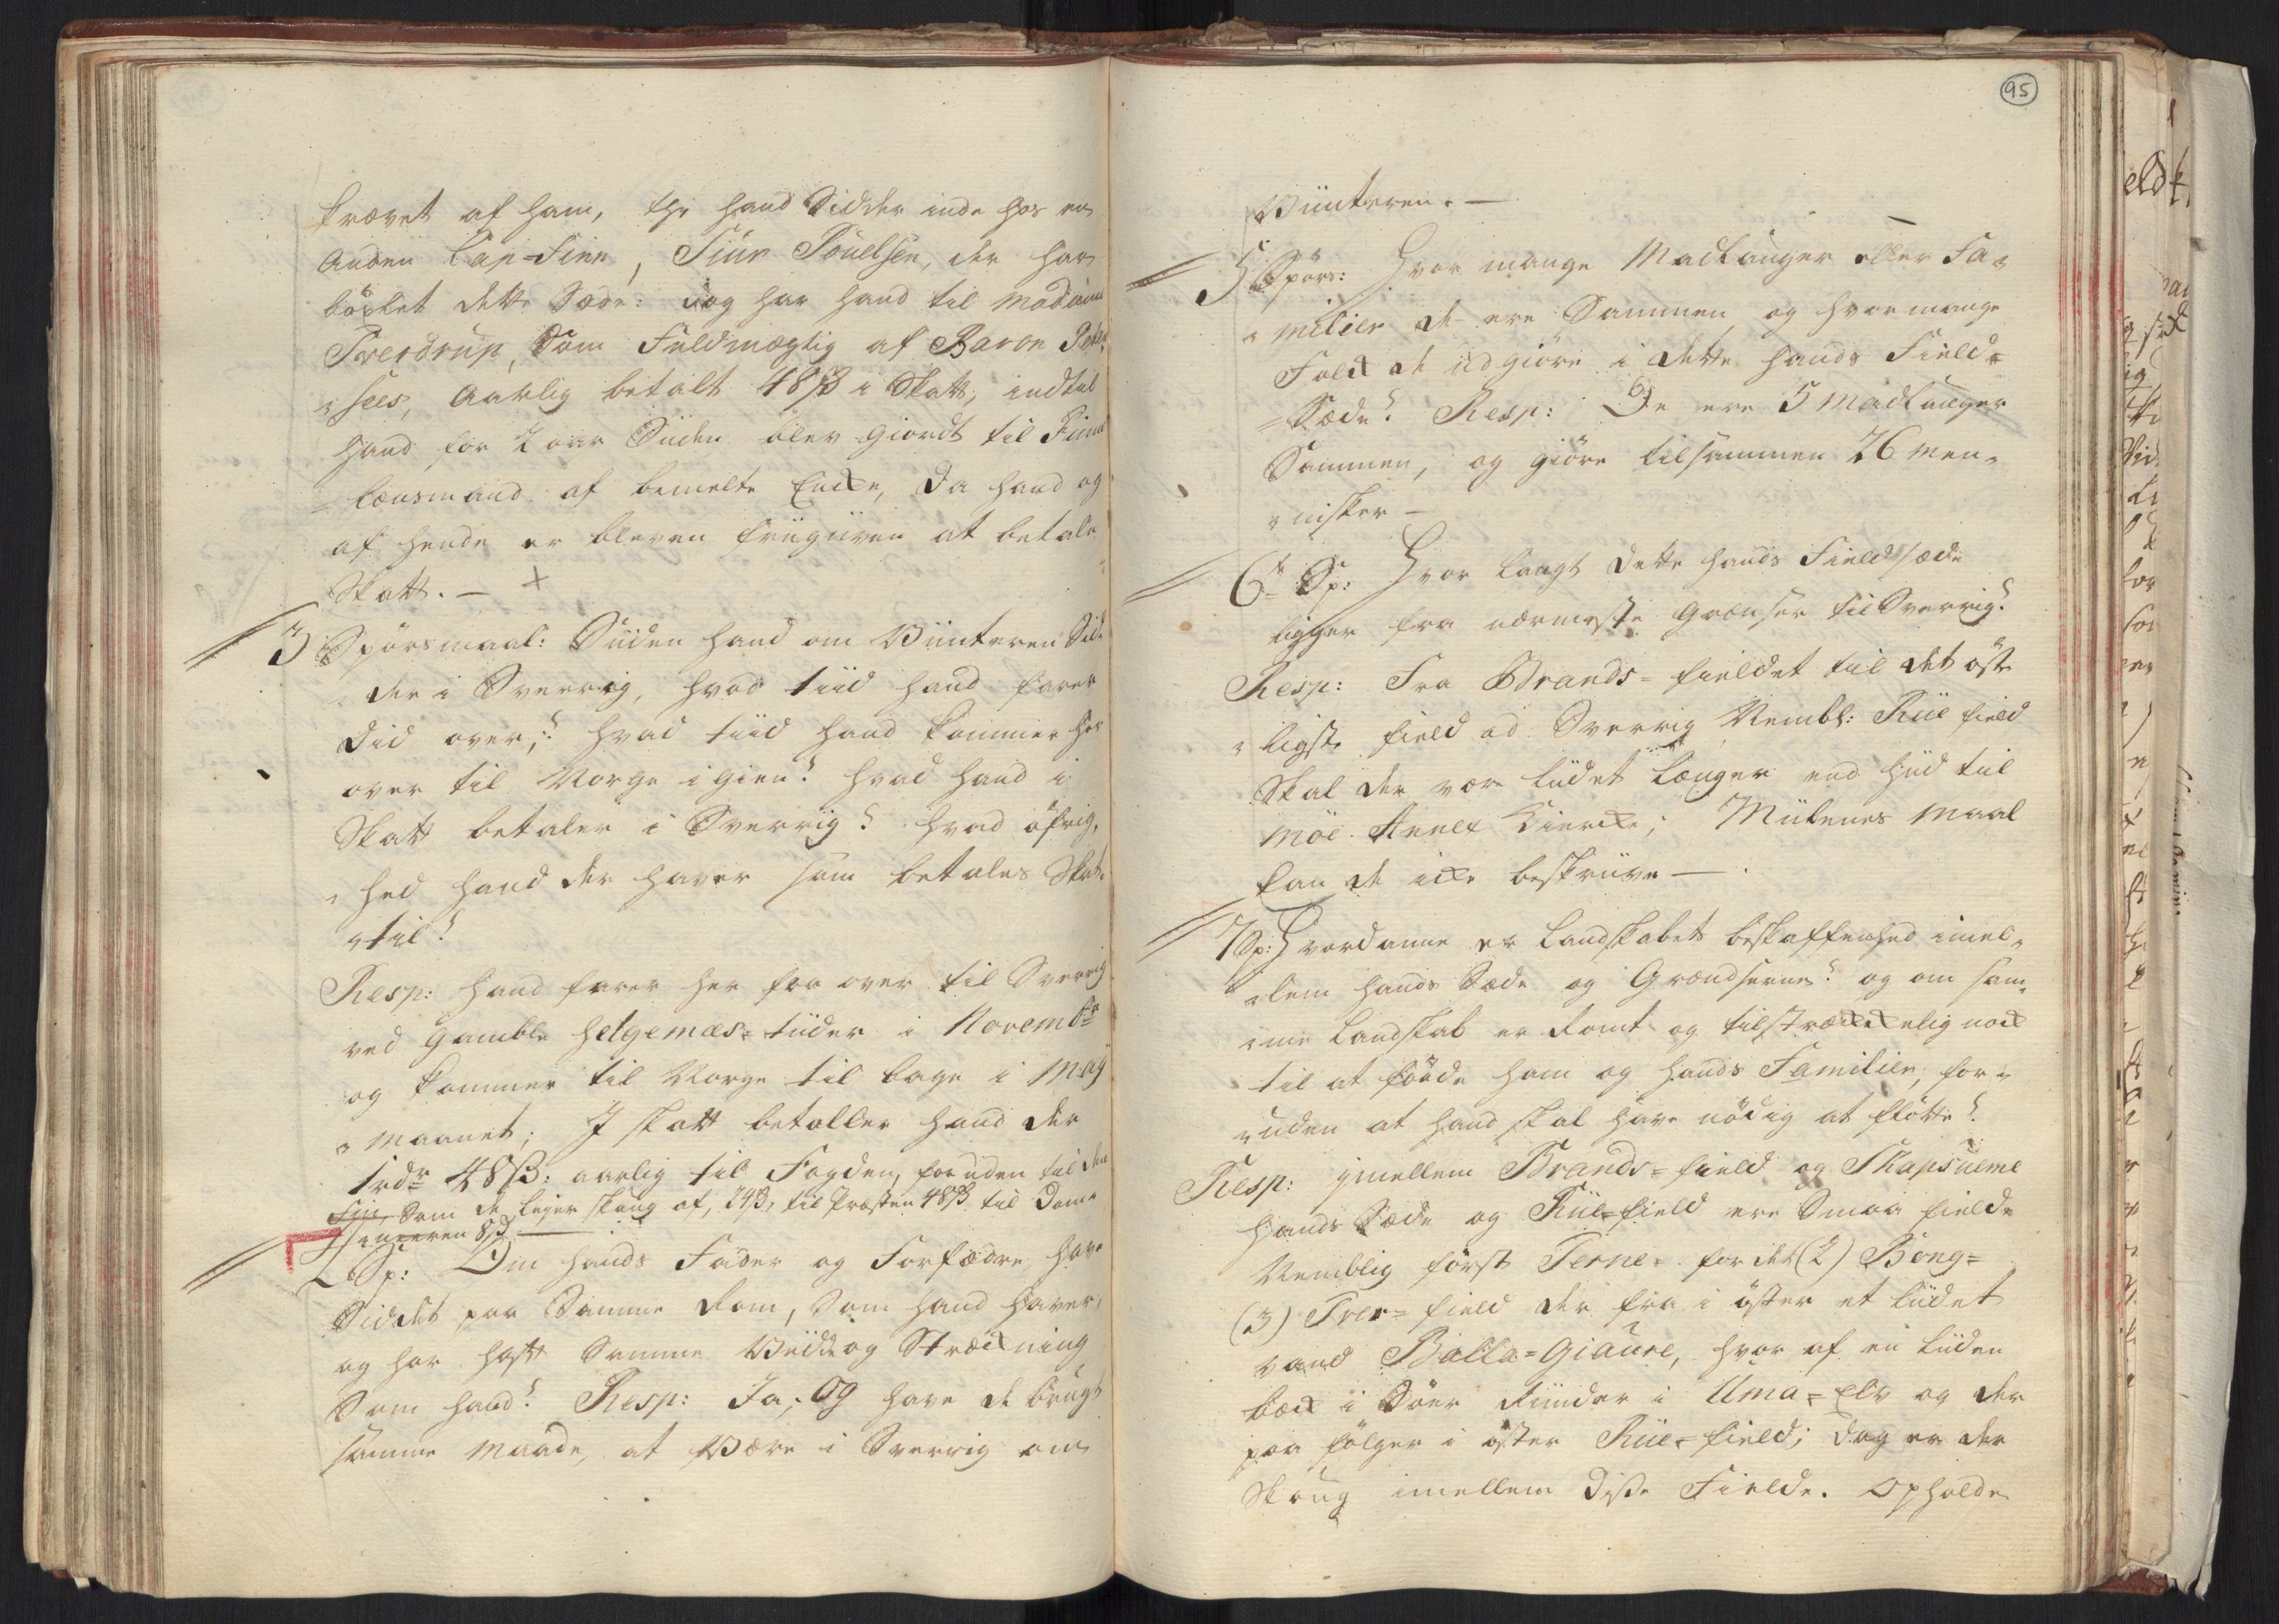 krævet af ham, thi hand Sidder inde hos en
Anden Lap-Finn, Siur Pouelsen, der har
böxlet dette Sæde: dog har hand til Madame
Tverdrup, Som Fuldmægtig af Baron Peter-
sees, Aarlig betalt 48 ß i Skatt, indtil
hand for 2 aar Siiden blev giordt til Finne
lænsmand af bemelte Encke, da hand og
af hende er bleven friigiiven at betale
Skatt. — +
3 Spörsmaal: Siiden hand om Viinteren Sid-
der i Sverrig, hvad tiid hand farer
did over,? hvad tiid hand kommer her
over til Norge igien? hvad hand i
Skatt betaler i Sverrig? hvad öfrig-
hed hand der haver som betales Skatt
til?
Resp: hand farer her fra over til Sverrig
ved gamble helgemæs-tiider i Novembr
og kommer til Norge tilbage i May
maanet; I skatt betaller hand der
1 rdr 48 ß: aarlig til Fogden, foruden til den
Fin, Som de leyer skoug af, 24 ß, til Præsten 48 ß til Dom-
meren 8 ß. —
4 Sp: Om hands Fader og Forfædre have
Siddet paa Samme Rom, Som hand haver,
og har haft Samme Viidde og Strækning
Som hand? Resp: Ja; Og have de brugt
samme maade, at Være i Sverrig om
95
Viinteren. —
5 Spörs: Hvor mange Madlauger eller Fa-
milier de ere Sammen og hvor mange
Folck de udgiöre i dette hands Field-
Sæde? Resp: De ere 5 madlauger
Sammen, og giöre tilsammen 26 men-
nisker —
6te Sp: Hvor langt dette hands Fieldsæde
ligger fra nærmeste Grænser til Sverrig?
Resp: Fra Brands-fieldet til det öst-
ligste field ad Sverrig Nembl: Riie field
Skal der være liidet længer end hiid til
Moe Annex Kiercke; Miilenes maal
kan de icke beskriive —
7 Sp: Hvordanne er Landskabets beskaffenhed imel-
lem hands Sæde og Grændserne? og om sam-
me Landskab er Romt og tilstræckkelig nock
til at föode ham og hands Familier, for-
uden at hand skal have nödig at flötte?
Resp: imellem Brands-field og Skapsueme
hands Sæde og Riie-field ere Smaa fielde
Nemblig först Terne- for det (2) Bong-
(3) Tver-field der fra i öster et liidet
vand Balla-Giaure, hvor af en liiden
beck i Söer Rinder i Uma-Elv og der
paa fölger i öster Riie-field; dog er der
Skoug imellem disse Fielde. Opholde